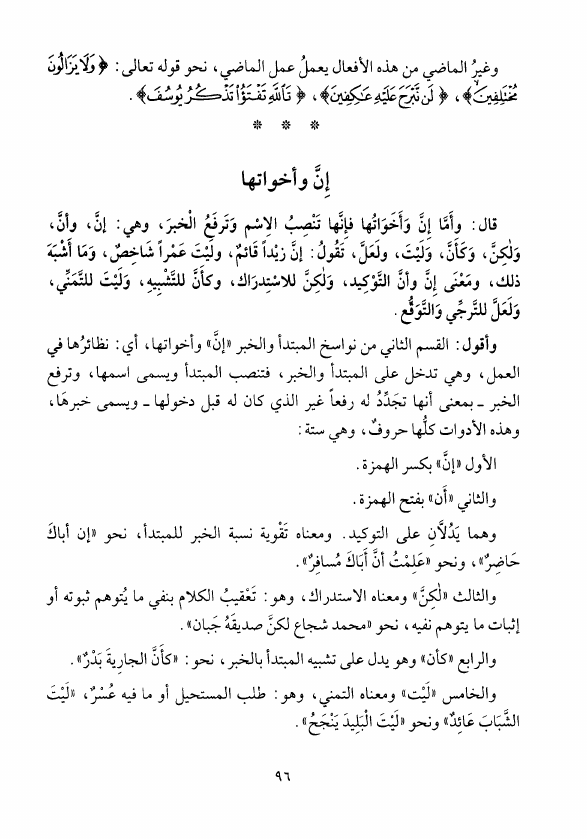 وغيرُ الماضي من هذه الأفعال يعملُ عمل الماضي، نحو قوله تعالى: ﴿ وَلَا يَزَالُونَ
مُخْتَلِفِينَ ﴾، ﴿ لَن نَّبْرَحَ عَلَيْهِ عَاكِفِينَ ﴾، ﴿ تَاللَّهِ تَفْتَؤُا تَذْكُرُ يُوسُفَ ﴾.
* * *
إِنَّ وأخواتها
قال: وأَمَّا إِنَّ وَأَخَوَاتُها فإنَّها تَنْصِبُ الِاسْم وَتَرفَعُ الْخبرَ، وهي: إنَّ، وأنَّ،
وَلٰكِنَّ، وَكَأَنَّ، وَلَيْتَ، ولَعَلَّ، تَقُولُ: إنَّ زيْداً قَائمٌ، ولَيْتَ عَمْراً شَاخِصٌ، وَمَا أَشْبَهَ
ذلك، ومَعْنَى إِنَّ وأنَّ التَّوْكِيد، وَلٰكِنَّ للاسْتِدرَاك، وكأنَّ للتَّشْبِيهِ، وَلَيْتَ للتَّمَنِّي،
وَلَعَلَّ للتَّرجِّي وَالتَّوَقُّع.
وأقول: القسم الثاني من نواسخ المبتدأ والخبر «إنَّ» وأخواتها، أي: نظائرُها في
العمل، وهي تدخل على المبتدأ والخبر، فتنصب المبتدأ ويسمى اسمها، وترفع
الخبر ـ بمعنى أنها تجَدِّدُ له رفعاً غير الذي كان له قبل دخولها ـ ويسمى خبرهَا،
وهذه الأدوات كلُّها حروفٌ، وهي ستة:
الأول «إنَّ» بكسر الهمزة.
والثاني «أَن» بفتح الهمزة.
وهما يَدُلَّانِ على التوكيد. ومعناه تَقْوية نسبة الخبر للمبتدأ، نحو «إن أباكَ
حَاضِرٌ»، ونحو «عَلِمْتُ أنَّ أَبَاكَ مُسافِرٌ».
والثالث «لٰكِنَّ» ومعناه الاستدراك، وهو: تَعْقيبُ الكلام بنفي ما يُتوهم ثبوته أو
إثبات ما يتوهم نفيه، نحو «محمد شجاع لكنَّ صديقَهُ جَبان».
والرابع «كأن» وهو يدل على تشبيه المبتدأ بالخبر، نحو: «كأنَّ الجاريةَ بَدْرٌ».
والخامس «لَيْت» ومعناه التمني، وهو: طلب المستحيل أو ما فيه عُسْرٌ، «لَيْتَ
الشَّبَابَ عَائِدٌ» ونحو «لَيْتَ الْبَلِيدَ يَنْجَحُ».
٩٦